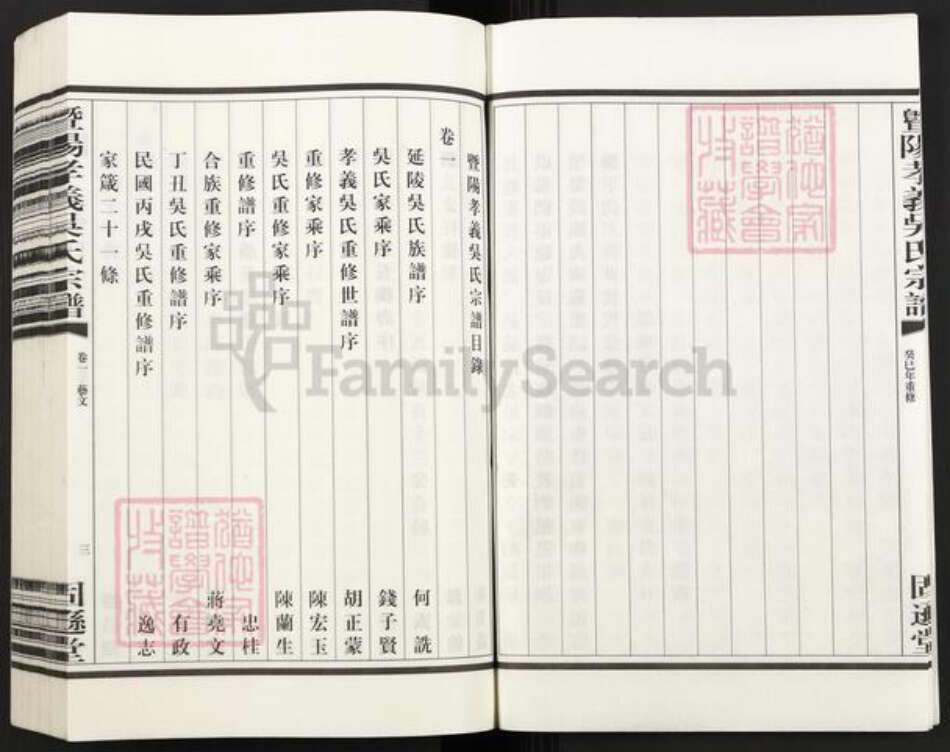 暨陽孝義吳氏宗譜
癸巳年重修
固遜堂
暨陽孝義吳氏宗譜目錄
卷一
延陵吳氏族譜序 何 詵
吳氏家乘序 錢子賢
孝義吳氏重修世譜序 胡正蒙
重修家乘序 陳宏玉
吳氏重修家乘序 陳蘭生
重修譜序 忠桂
合族重修家乘序 蔣堯文
丁丑吳氏重修譜序 有政
民國丙戌吳氏重修譜序 逸志
家箴二十一條
暨陽孝義吳氏宗譜
卷一 藝文
三
固遜堂
譜學會
收藏
譜學會
收藏
FamilySearch